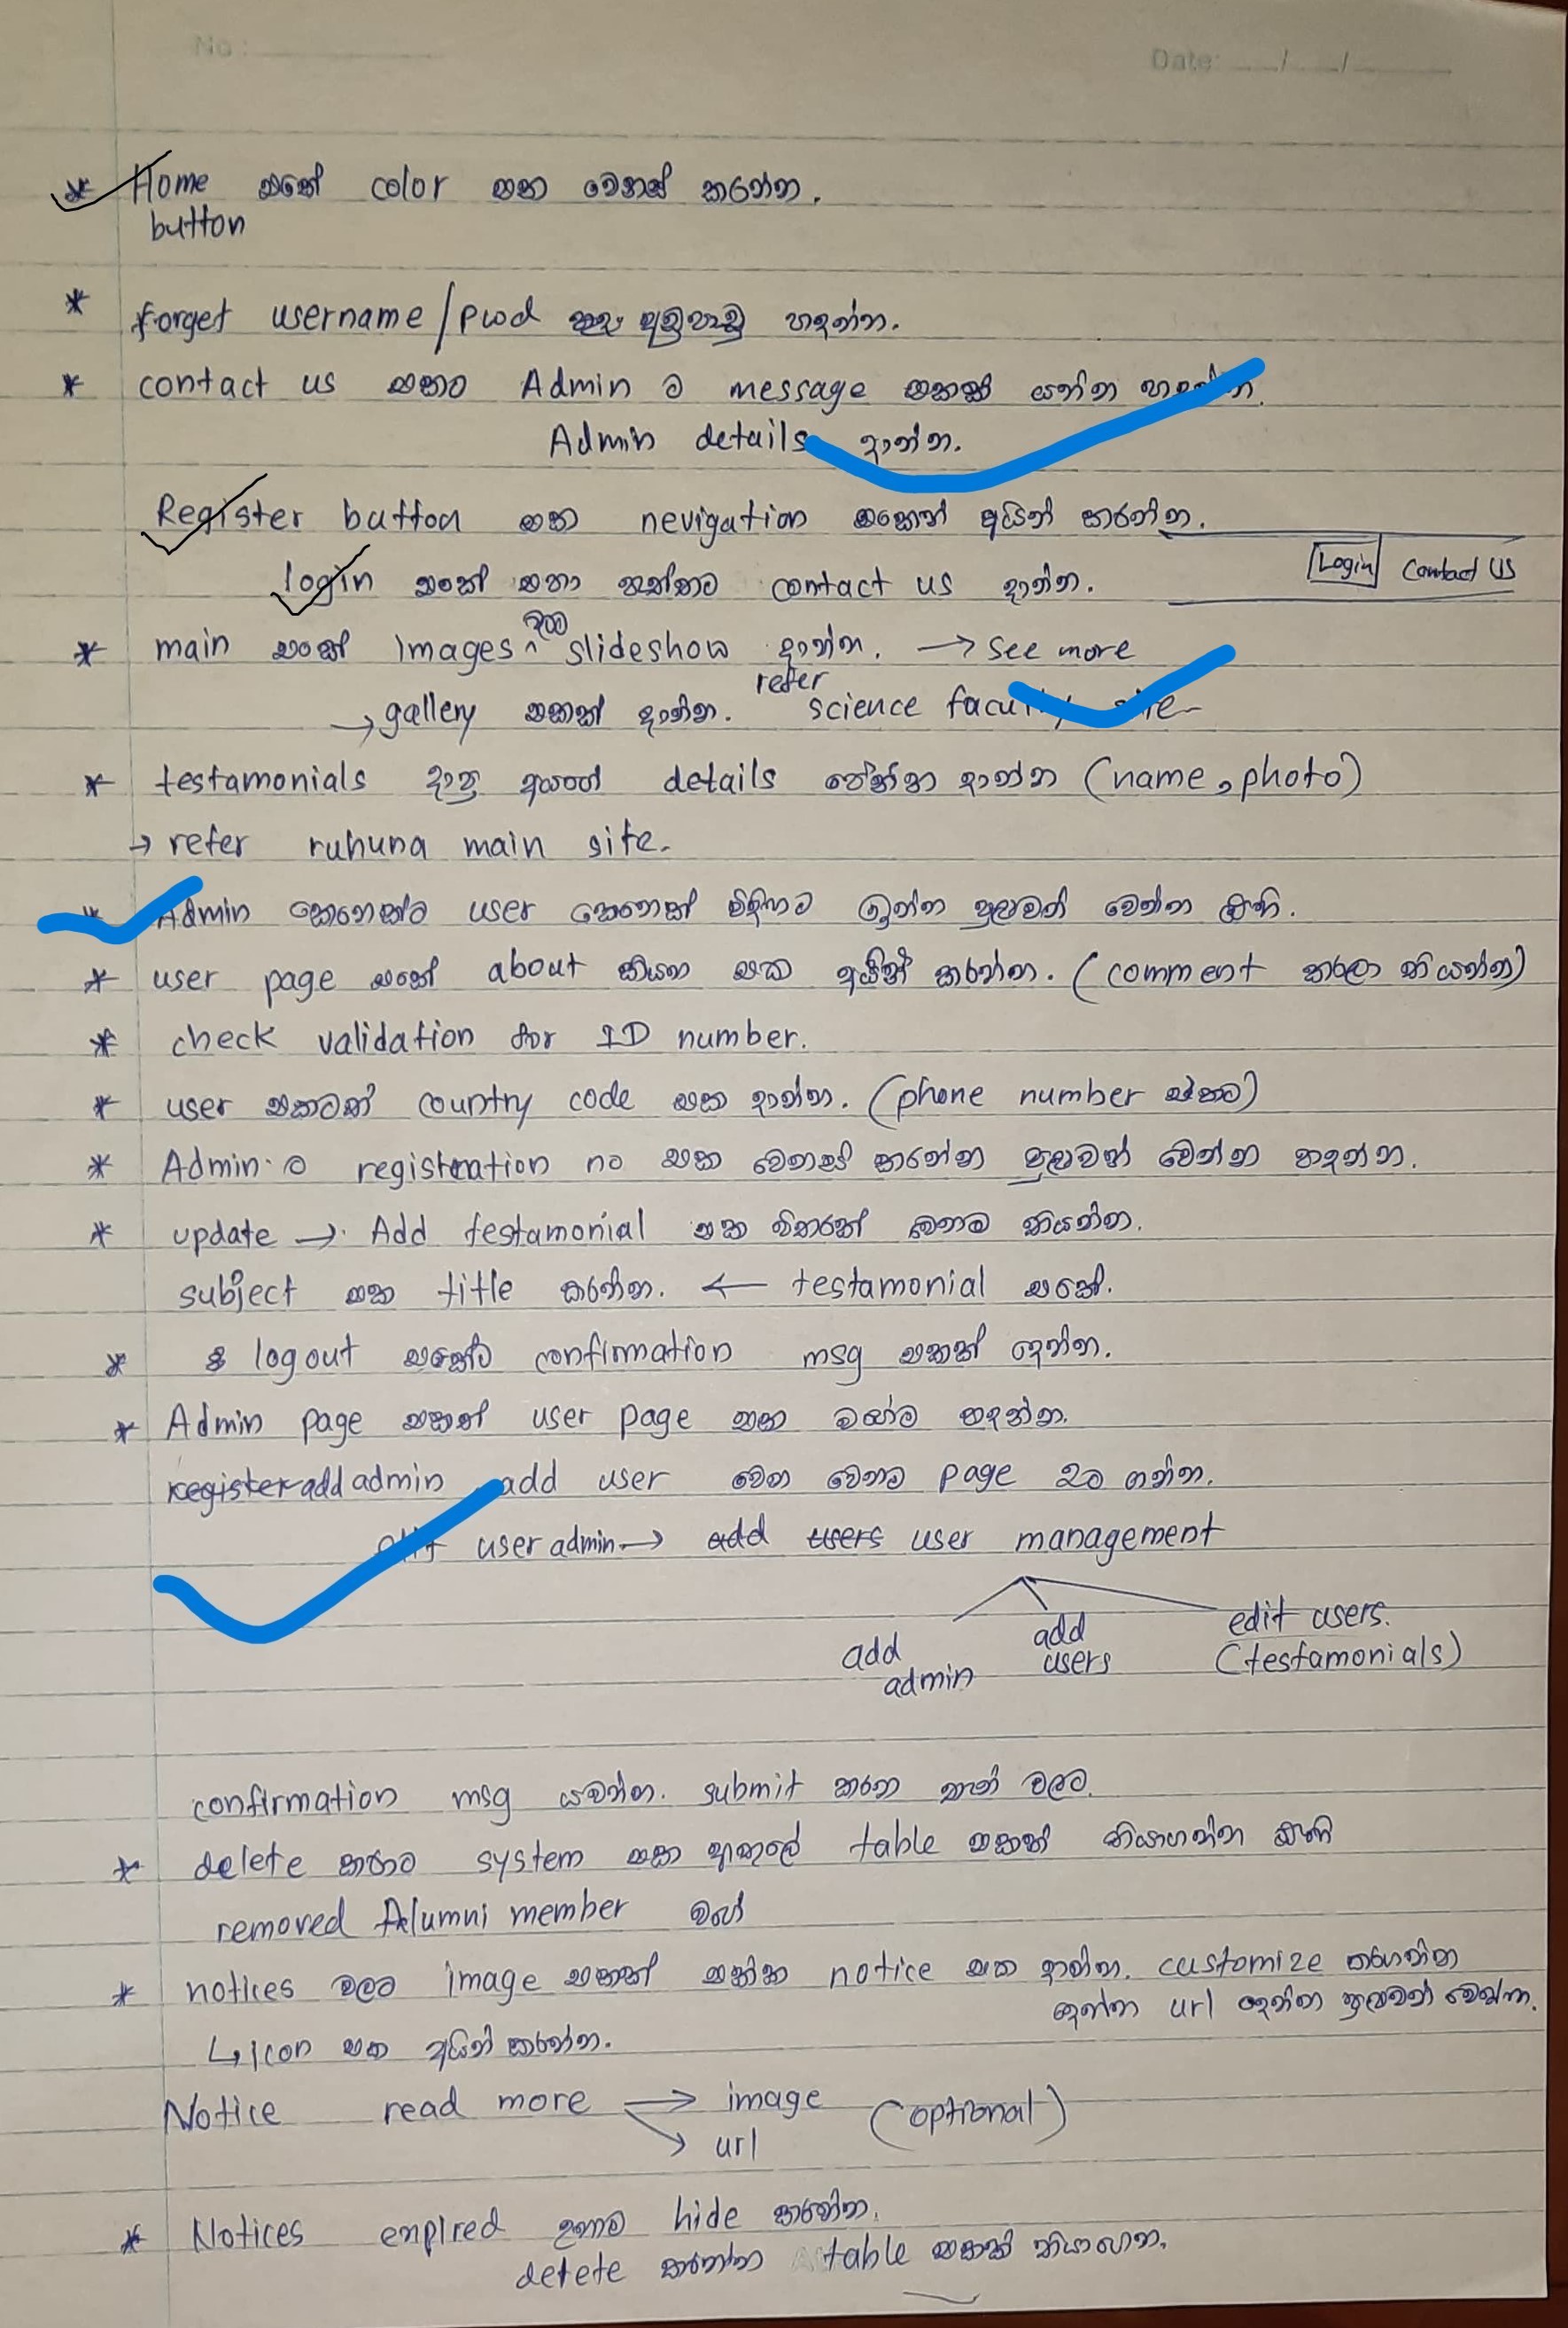 No :
Date: / /
Home එකේ color එක වෙනස් කරන්න.
button
forget username/pwd අඩුපාඩු හදන්න.
contact us එකට Admin ට message එකක් යන්න හදන්න.
Admin details දාන්න.
Register button එක nevigation එකෙන් අයින් කරන්න.
login එකේ එහා පැත්තට contact us දාන්න.
Login Contact US
main එකේ images slideshow දාන්න. → see more
→ gallery එකක් දාන්න. refer science faculty site
* testamonials දාපු අයගේ details පේන්න දාන්න (name, photo)
→ refer ruhuna main site.
Admin කෙනෙක්ට user කෙනෙක් විදිහට ඉන්න පුළුවන් වෙන්න ඕනි.
* user page එකේ about කියන එක අයින් කරන්න. (comment කරලා තියන්න)
* check validation for ID number.
* user එකටත් country code එක දාන්න. (phone number එකට)
* Admin ට registration no එක වෙනස් කරන්න පුළුවන් වෙන්න හදන්න.
* update → Add testamonial එක විතරක් වෙනම තියන්න.
subject එක title කරන්න. ← testamonial එකේ.
* logout එකේට confirmation msg එකක් දෙන්න.
* Admin page එකත් user page එක වගේම හදන්න.
register add admin add user වෙන වෙනම page 2ට ගන්න.
user admin → add users user management
add admin
add users
edit users.
(testamonials)
confirmation msg යවන්න. submit කරන තැන් වලට.
* delete කරාට system එක ඇතුලේ table එකක් තියාගන්න ඕනි
removed Alumni member වගේ
* notices වලට image එකක් එක්ක notice එක දාන්න. customize කරගන්න
දෙන්න url දෙන්න පුළුවන් වෙන්න.
↳ icon එක අයින් කරන්න.
Notice read more → image (optional)
→ url
* Notices enpired උනාම hide කරන්න.
detete කරන්න table එකක් තියාගන්න.